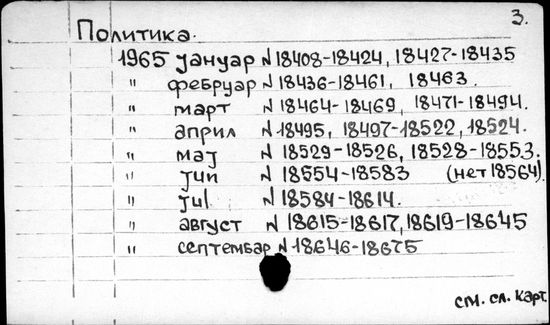 3.
Политика.
1965 јануар N 18408-18424, 18427-18435
" фебруар N 18436-18461, 18463.
" март N 18464-18469, 18471-18494.
" април N 18495, 18497-18522, 18524.
" мај N 18529-18526, 18528-18553.
" јип N 18554-18583 (нет 18564).
" јul. N 18584-18614.
" август N 18615-18617, 18619-18645
" септембар N 18646-18675
см. сл. карт.